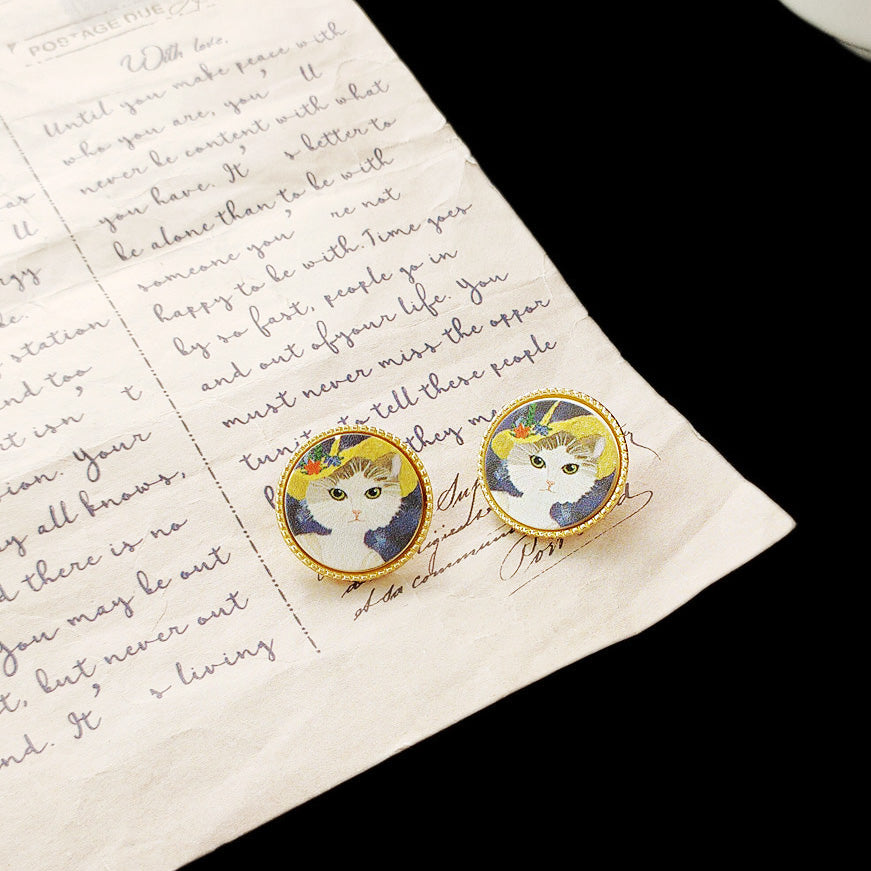 POSTAGE DUE
With love.
Until you make peace with
who you are, you' ll
never be content with what
you have. It' s better to
be alone than to be with
someone you' re not
happy to be with. Time goes
by so fast, people go in
and out of your life. You
must never miss the oppor
to tell these people
they
as
ll
station
nd too
t isn' t
Your
y all knows,
d there is no
you may be out
t, but never out
nd. It' s living
et sa